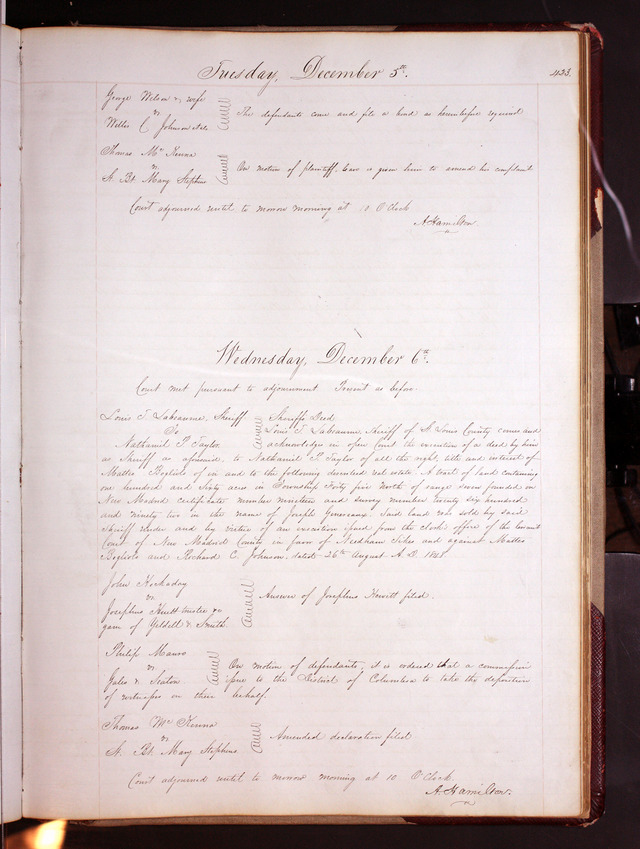 Tuesday, December 5th.
433.
George Wilson & wife
vs
Willis C Johnson et al
The defendants come and file a bond as heretofore required
Thomas Mc Kenna
vs
St. Bt. Mary Stephens
On motion of plaintiff, leave is given him to amend his complaint
Court adjourned until to morrow morning at 10 O'Clock
A Hamilton
Wednesday, December 6th.
Court met pursuant to adjournment Present as before.
Louis T. Labeaume, Sheriff
To
Nathaniel P. Taylor
Sheriffs Deed
Louis T. Labeaume, Sheriff of St. Louis County comes and
acknowledges in open Court the execution of a deed by him
as Sheriff as aforesaid, to Nathaniel P. Taylor of all the right, title and interest of
Matteo Bogliolo of in and to the following described real estate. A tract of land containing
one hundred and sixty acres in Township Forty five North of range seven founded on
New Madrid certificate number nineteen and survey number twenty six hundred
and ninety two in the name of Joseph Said land was sold by said
Sheriff under and by virtue of an execution issued from the clerks office of the Circuit
Court of New Madrid County in favor of Needham Sikes and against Matteo
Bogliolo and Richard C. Johnson, dated 26th August A. D. 1848
John Hockaday
vs
Josephus Hewitt trustee &c
garn of Yeldell & Smith.
Answer of Josephus Hewitt filed.
Philip Mauro
vs
Gales & Seaton
On motion of defendants, it is ordered that a commission
issue to the District of Columbia to take the deposition
of witnesses on their behalf.
Thomas Mc Kenna
vs
St. Bt. Mary Stephens
Amended declaration filed
Court adjourned until to morrow morning at 10 O'Clock.
A. Hamilton.